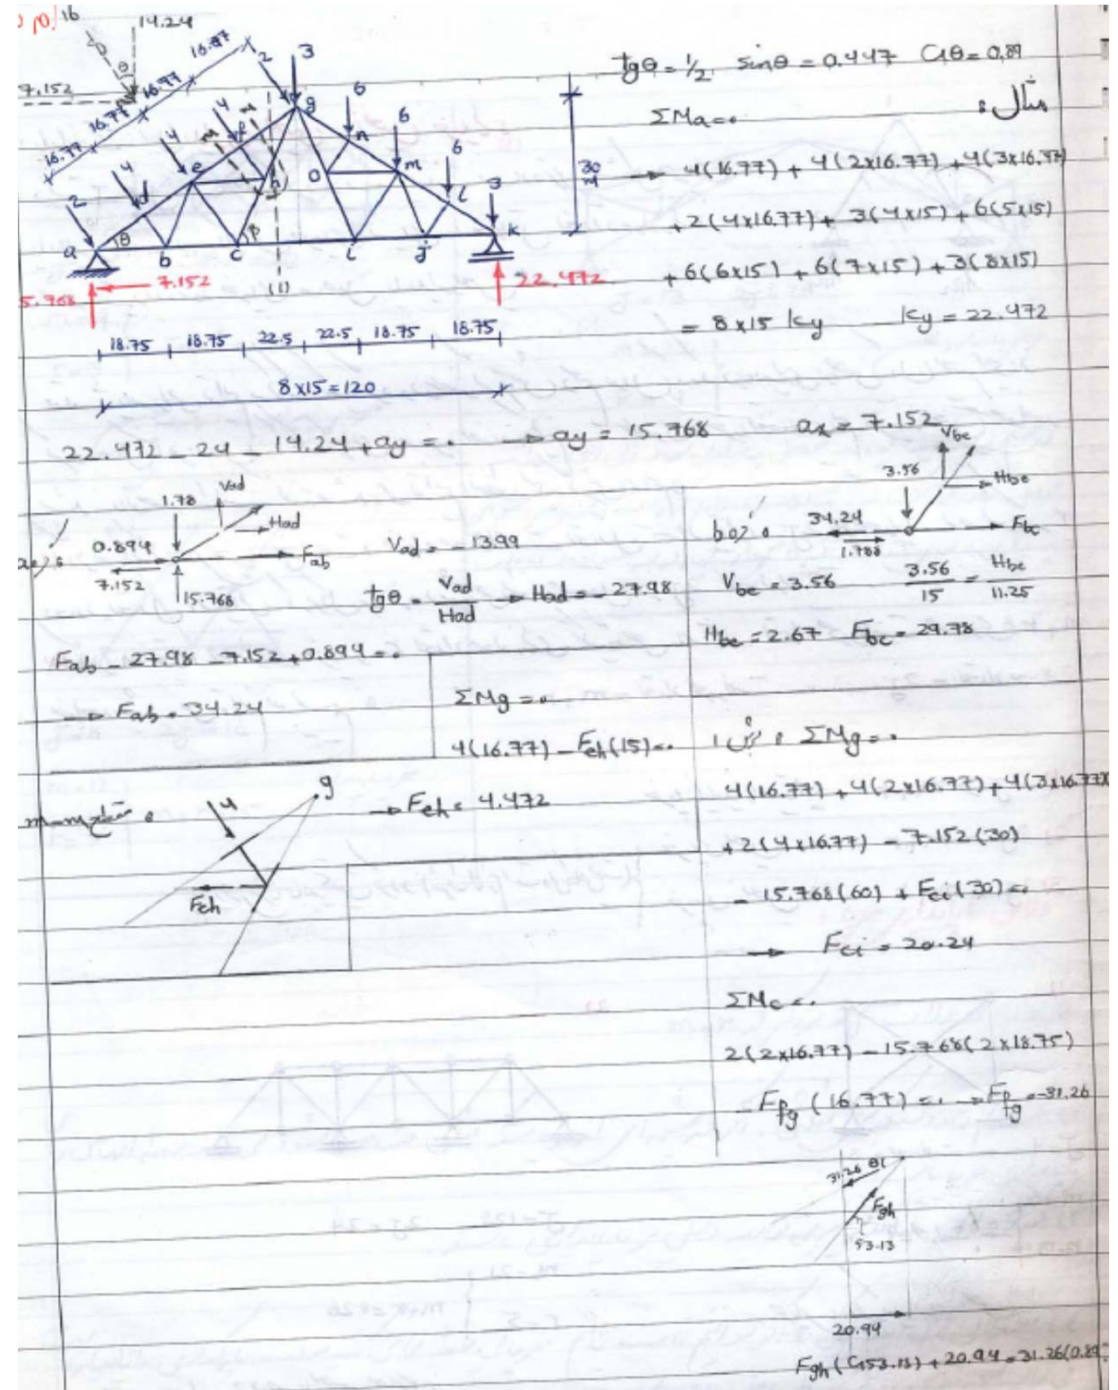 16
14.24
7.152
θ
16.77
16.77
16.77
16.77
2
4
4
4
2
3
6
6
6
3
a
b
c
d
e
g
h
i
j
k
l
m
n
o
θ
β
m
m
30
(1)
5.768
7.152
22.472
18.75 18.75 22.5 22.5 18.75 18.75
8x15=120
tgθ = 1/2 sinθ = 0.447 Cosθ = 0.89
مثال:
ΣMa=0
→ 4(16.77) + 4(2x16.77) + 4(3x16.77)
+2(4x16.77) + 3(4x15) + 6(5x15)
+6(6x15) + 6(7x15) + 3(8x15)
= 8x15 ky ky = 22.472
22.472 - 24 - 14.24 + ay = 0 → ay = 15.768 ax = 7.152
1.78
Vad
Had
0.894
7.152
Fab
15.768
Vad = -13.99
tgθ = Vad/Had → Had = -27.98
Fab - 27.98 - 7.152 + 0.894 = 0
→ Fab = 34.24
3.56
Vbe
Hbe
34.24
1.788
Fbc
Vbe = 3.56 3.56/15 = Hbe/11.25
Hbe = 2.67 Fbc = 29.78
ΣMg = 0
4(16.77) - Feh(15) = 0
→ Feh = 4.472
m-m
4
g
Feh
1 برش : ΣMg = 0
4(16.77) + 4(2x16.77) + 4(3x16.77)
+2(4x16.77) - 7.152(30)
- 15.768(60) + Fci(30) = 0
→ Fci = 20.24
ΣMc = 0
2(2x16.77) - 15.768(2x18.75)
- Ffg (16.77) = 0 → Ffg = -31.26
31.26
θ
Fgh
53.13
20.94
Fgh (Cos53.13) + 20.94 = 31.26(0.89